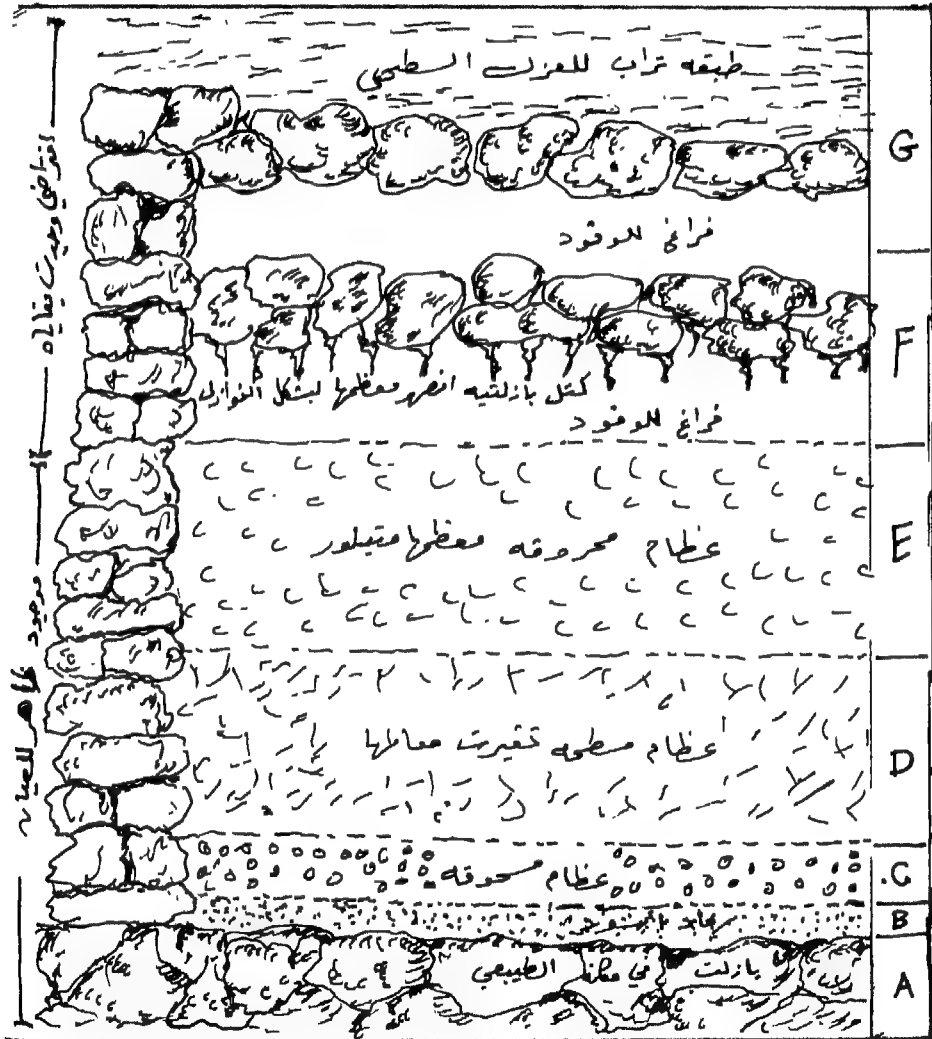 طبقه تراب للعزل السطحي
G
فراغ للوقود
F
كتل بازلتيه انصهر معظمها بشكل النوازل
فراغ للوقود
عظام محروقه معظمها متبلور
E
عظام مسطحه تغيرت معالمها
D
عظام مسحوقه
C
B
بازلت في مكانه الطبيعي
A
افتراضي وجدت بقاياه
موجود ظاهر للعيان